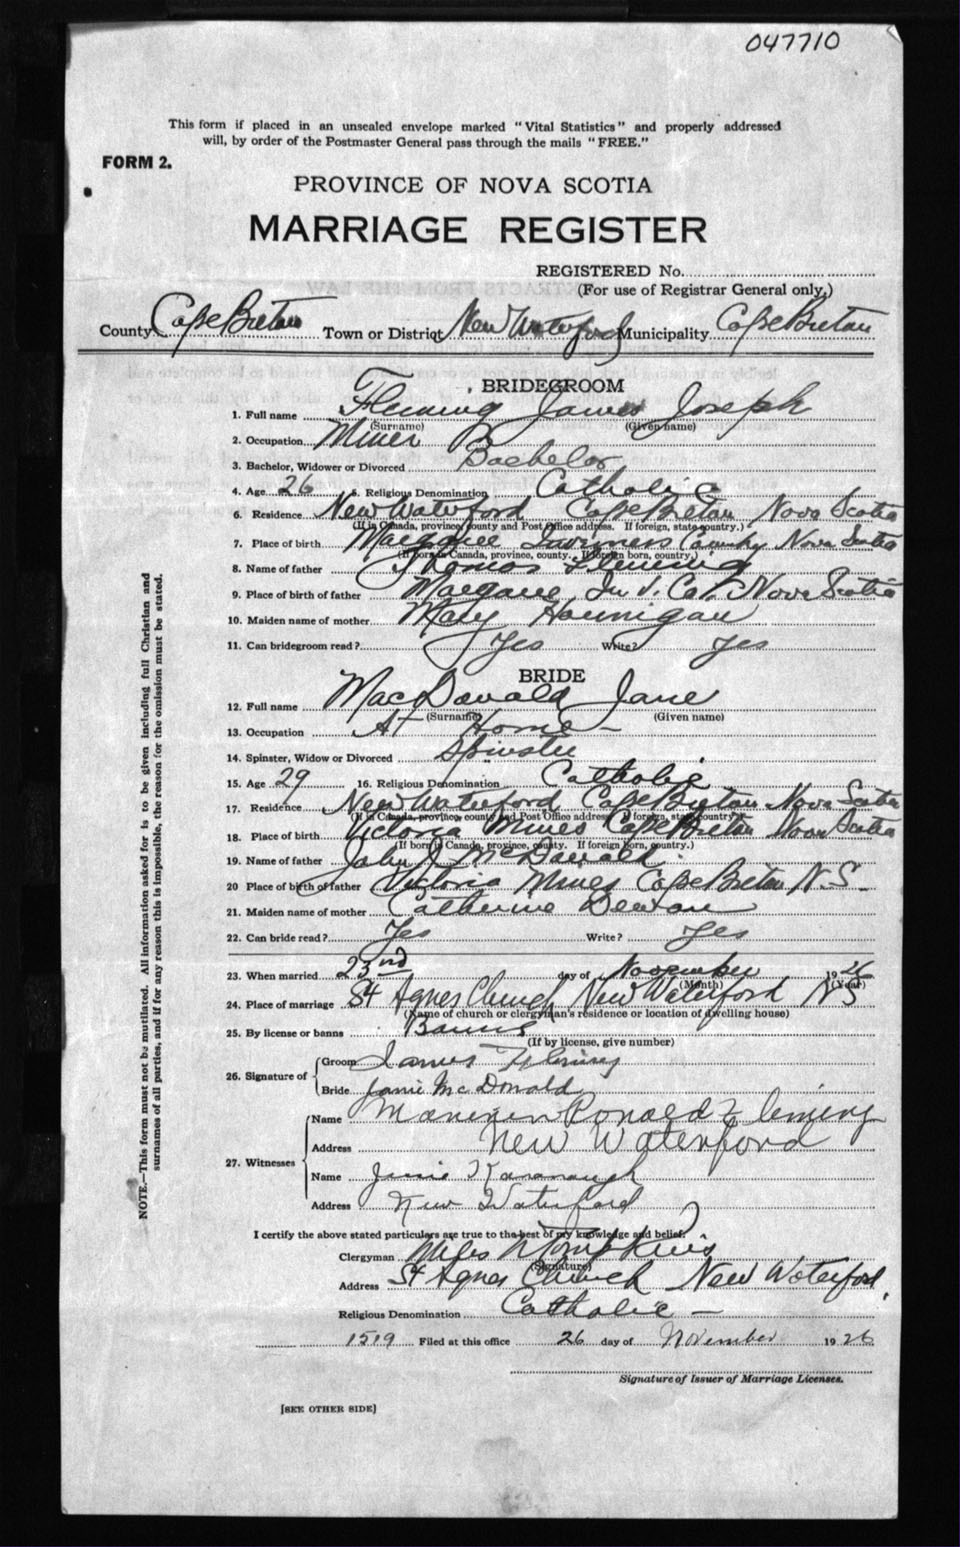 047710
This form if placed in an unsealed envelope marked "Vital Statistics" and properly addressed
will, by order of the Postmaster General pass through the mails "FREE."
FORM 2.
PROVINCE OF NOVA SCOTIA
MARRIAGE REGISTER
REGISTERED No.
(For use of Registrar General only,)
County Cape Breton Town or District New Waterford Municipality Cape Breton
BRIDEGROOM
1. Full name Fleming James Joseph
(Surname) (Given name)
2. Occupation Miner
3. Bachelor, Widower or Divorced Bachelor
4. Age 26 5. Religious Denomination Catholic
6. Residence New Waterford Cape Breton Nova Scotia
(If in Canada, province, county and Post Office address. If foreign, state country.)
7. Place of birth Margaree Inverness County Nova Scotia
(If born in Canada, province, county. If foreign born, country.)
8. Name of father Thomas Fleming
9. Place of birth of father Margaree Inv. Co. Nova Scotia
10. Maiden name of mother Mary Hannigan
11. Can bridegroom read? Yes Write? Yes
BRIDE
12. Full name MacDonald Jane
(Surname) (Given name)
13. Occupation At Home
14. Spinster, Widow or Divorced Spinster
15. Age 29 16. Religious Denomination Catholic
17. Residence New Waterford Cape Breton Nova Scotia
(If in Canada, province, county and Post Office address. If foreign, state country.)
18. Place of birth Victoria Mines Cape Breton Nova Scotia
(If born in Canada, province, county. If foreign born, country.)
19. Name of father John J. McDonald
20 Place of birth of father Victoria Mines Cape Breton N.S.
21. Maiden name of mother Catherine
22. Can bride read? Yes Write? Yes
23. When married 23nd day of November 1926
(Month) (Year)
24. Place of marriage St Agnes Church New Waterford NS
(Name of church or clergyman's residence or location of dwelling house)
25. By license or banns Banns
(If by license, give number)
26. Signature of
Groom James Fleming
Bride Janie McDonald
27. Witnesses
Name Ronald Fleming
Address New Waterford
Name Kavanaugh
Address New Waterford
I certify the above stated particulars are true to the best of my knowledge and belief.
Clergyman Miles N Tompkins
(Signature)
Address St Agnes Church New Waterford.
Religious Denomination Catholic
1519 Filed at this office 26 day of November 1926
Signature of Issuer of Marriage Licenses.
[SEE OTHER SIDE]
NOTE.—This form must not be mutilated. All information asked for is to be given including full Christian and
surnames of all parties, and if for any reason this is impossible, the reason for the omission must be stated.